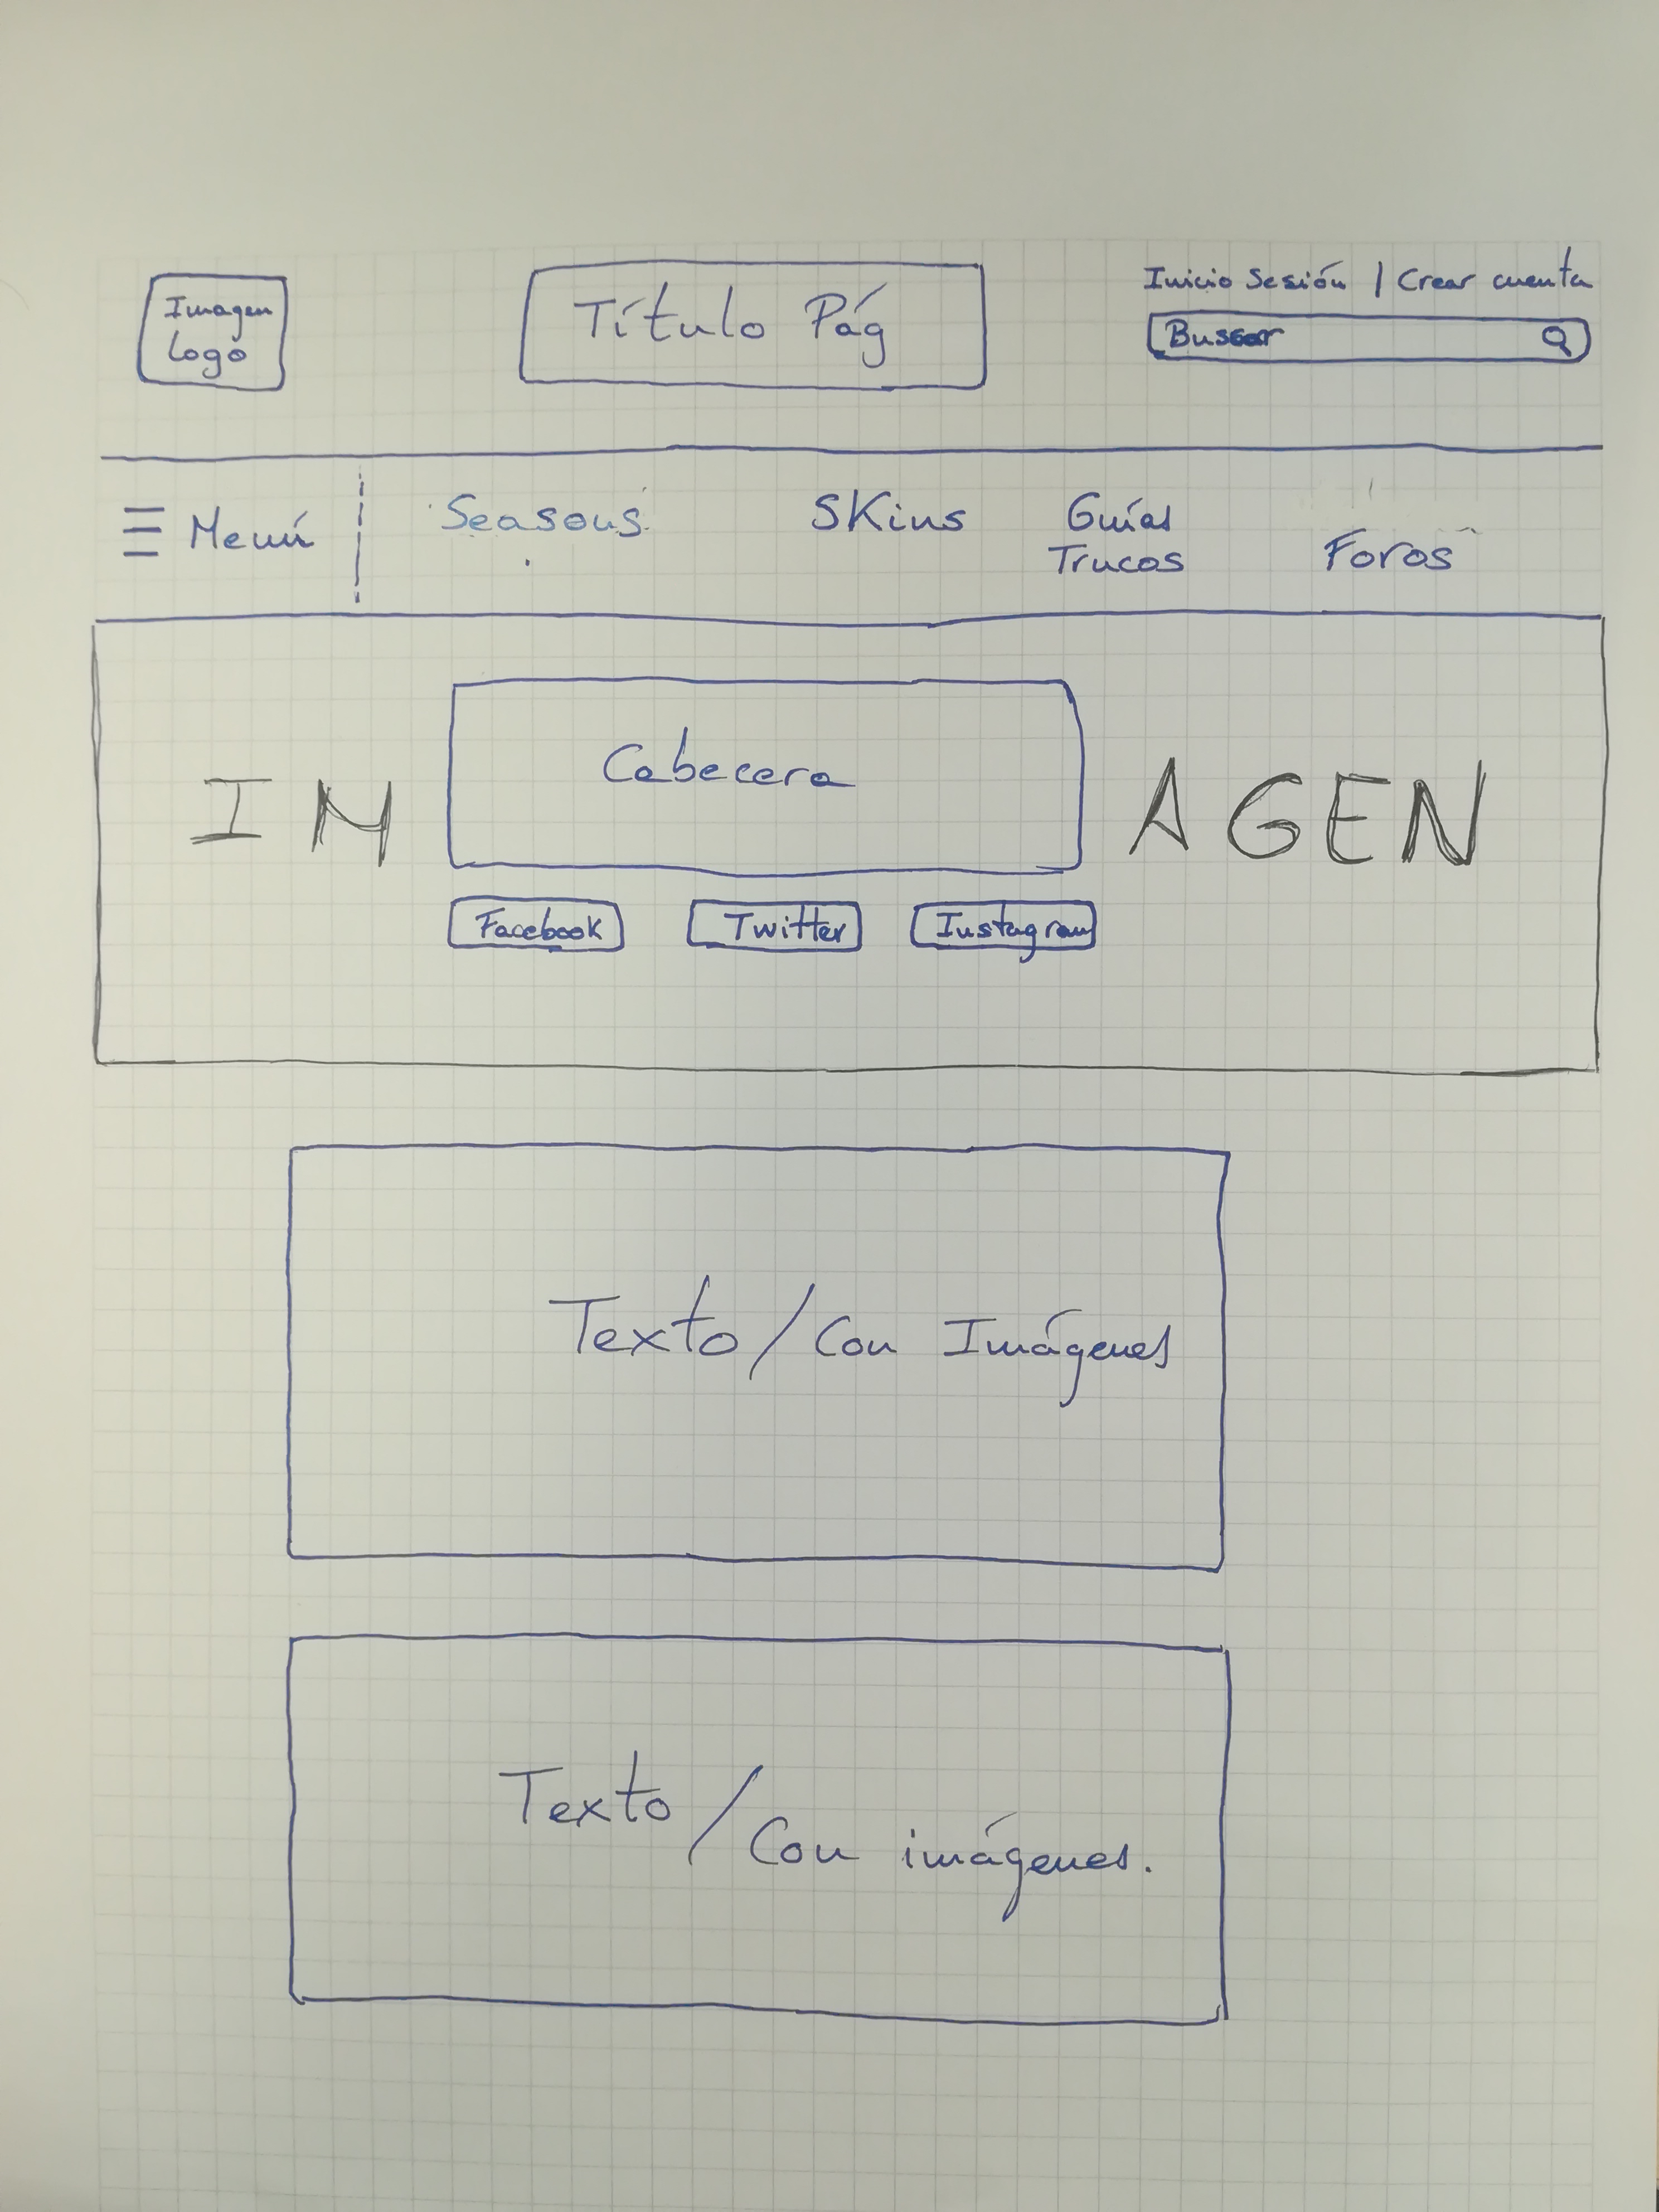 Imagen
Logo
Título Pág
Inicio Sesión | Crear cuenta
Buscar
Menú
Seasons
Skins
Guías
Trucos
Foros
IM
AGEN
Cabecera
Facebook
Twitter
Instagram
Texto / Con Imágenes
Texto / Con imágenes.